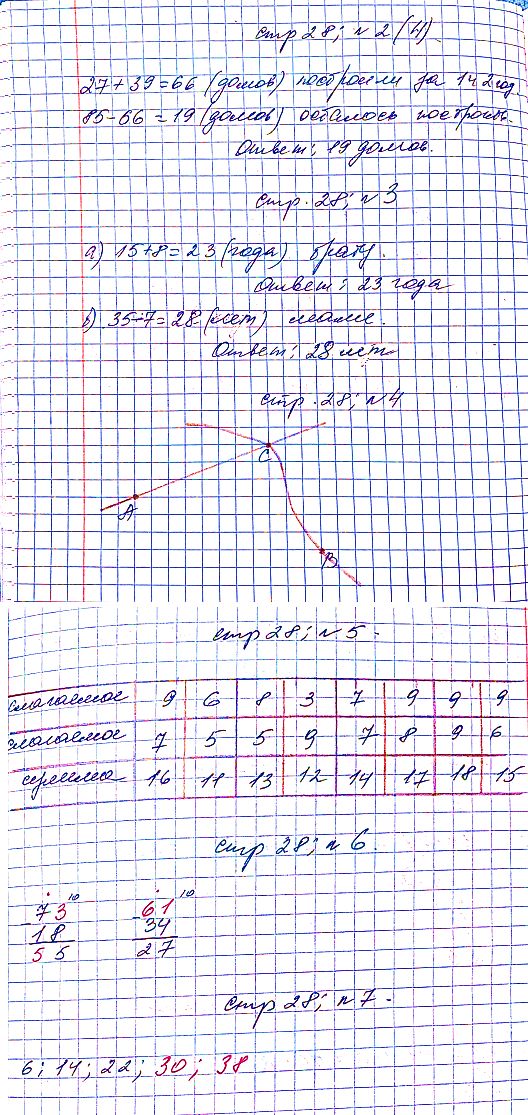 стр 28; № 2 (4)
27 + 39 = 66 (домов) построили за 1 и 2 год
85 - 66 = 19 (домов) осталось построить
Ответ: 19 домов.
стр. 28; № 3
а) 15 + 8 = 23 (года) брату.
Ответ: 23 года
б) 35 - 7 = 28 (лет) маме.
Ответ: 28 лет
стр. 28; № 4
C
A
B
стр 28; № 5.
слагаемое 9 6 8 3 7 9 9 9
слагаемое 7 5 5 9 7 8 9 6
сумма 16 11 13 12 14 17 18 15
стр 28; № 6.
10 10
- 73 - 61
18 34
55 27
стр 28; № 7.
6; 14; 22; 30; 38